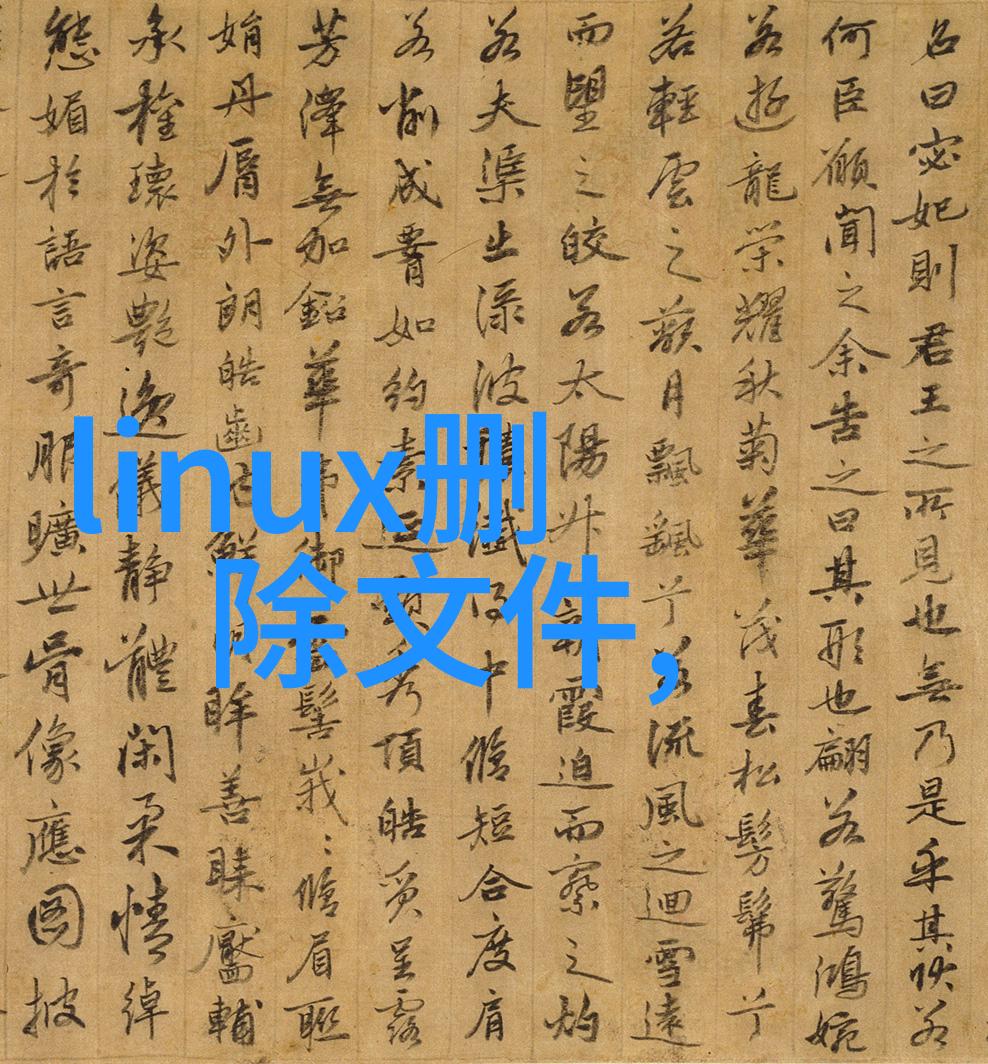 linux删
除文件,
名曰宓妃則君王之所見也無乃是乎其狀若
何臣願聞之余告之曰其形也翩若驚鴻婉
若遊龍榮耀秋菊華茂春松髣髴兮
若輕雲之蔽月飄颻兮若流風之迴雪遠
而望之皎若太陽升朝霞迫而察之灼
若夫渠出淥波穠纖得中脩短合度肩
若削成腰如約素延頸秀項皓質呈露
芳澤無加鉛華弗御雲髻峩〻脩眉聯
娟丹脣外朗皓齒內鮮明眸善睞靨輔
承權瓌姿艷逸儀靜體閑柔情綽
態媚於語言奇服曠世骨像應圖披